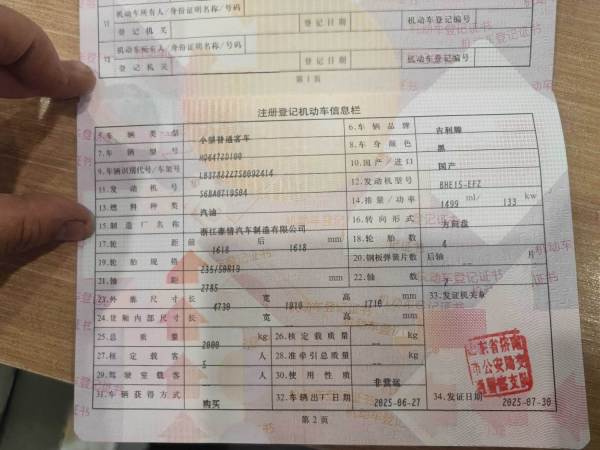 机动车所有人/身份证明名称/号码
11
登记机关 登记日期 机动车登记编号
机动车所有人/身份证明名称/号码
12
登记机关 登记日期 机动车登记编号
第1页
注册登记机动车信息栏
5.车辆类型 小型普通客车 6.车辆品牌 吉利牌
7.车辆型号 8.车身颜色 黑
9.车辆识别代号/车架号 10.国产/进口 国产
11.发动机号 S6BA0T19504 12.发动机型号 BHE15-EFZ
13.燃料种类 汽油 14.排量/功率 1499 ml/ 133 kw
15.制造厂名称 浙江豪情汽车制造有限公司 16.转向形式 方向盘
17.轮距 前 1618 后 1618 mm 18.轮胎数 4
19.轮胎规格 235/50R19 20.钢板弹簧片数 后轴 片
21.轴距 2785 mm 22.轴数 2
23.外廓尺寸 长 4730 宽 1910 高 1710 mm 33.发证机关章
24.货厢内部尺寸 长 宽 高 mm
25.总质量 kg 26.核定载质量 kg
27.核定载客 5 人 28.准牵引总质量 kg
29.驾驶室载客 人 30.使用性质 非营运
31.车辆获得方式 购买 32.车辆出厂日期 2025-06-27 34.发证日期 2025-07-30
山东省济南
市公安局交
通警察支队
第2页